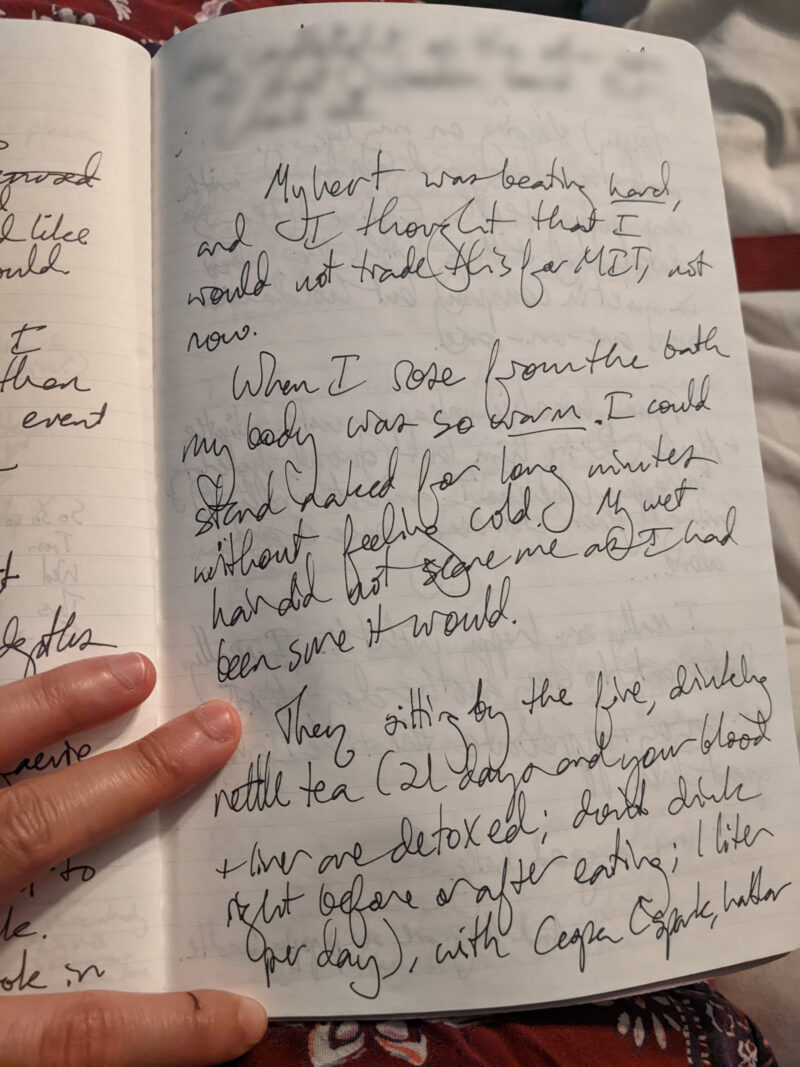 posed
d like
ould
I
then
event
depths
aerie
to
k.
ok in
My hert was beating hard,
and I thought that I
would not trade this for MIT, not
now.
When I rose from the bath
my body was so warm. I could
stand naked for long minutes
without feeling cold. My wet
hair did not scare me as I had
been sure it would.
Then sitting by the fire, drinking
nettle tea (2l day and your blood
+ liver are detoxed; don't drink
right before or after eating; 1 liter
per day), with